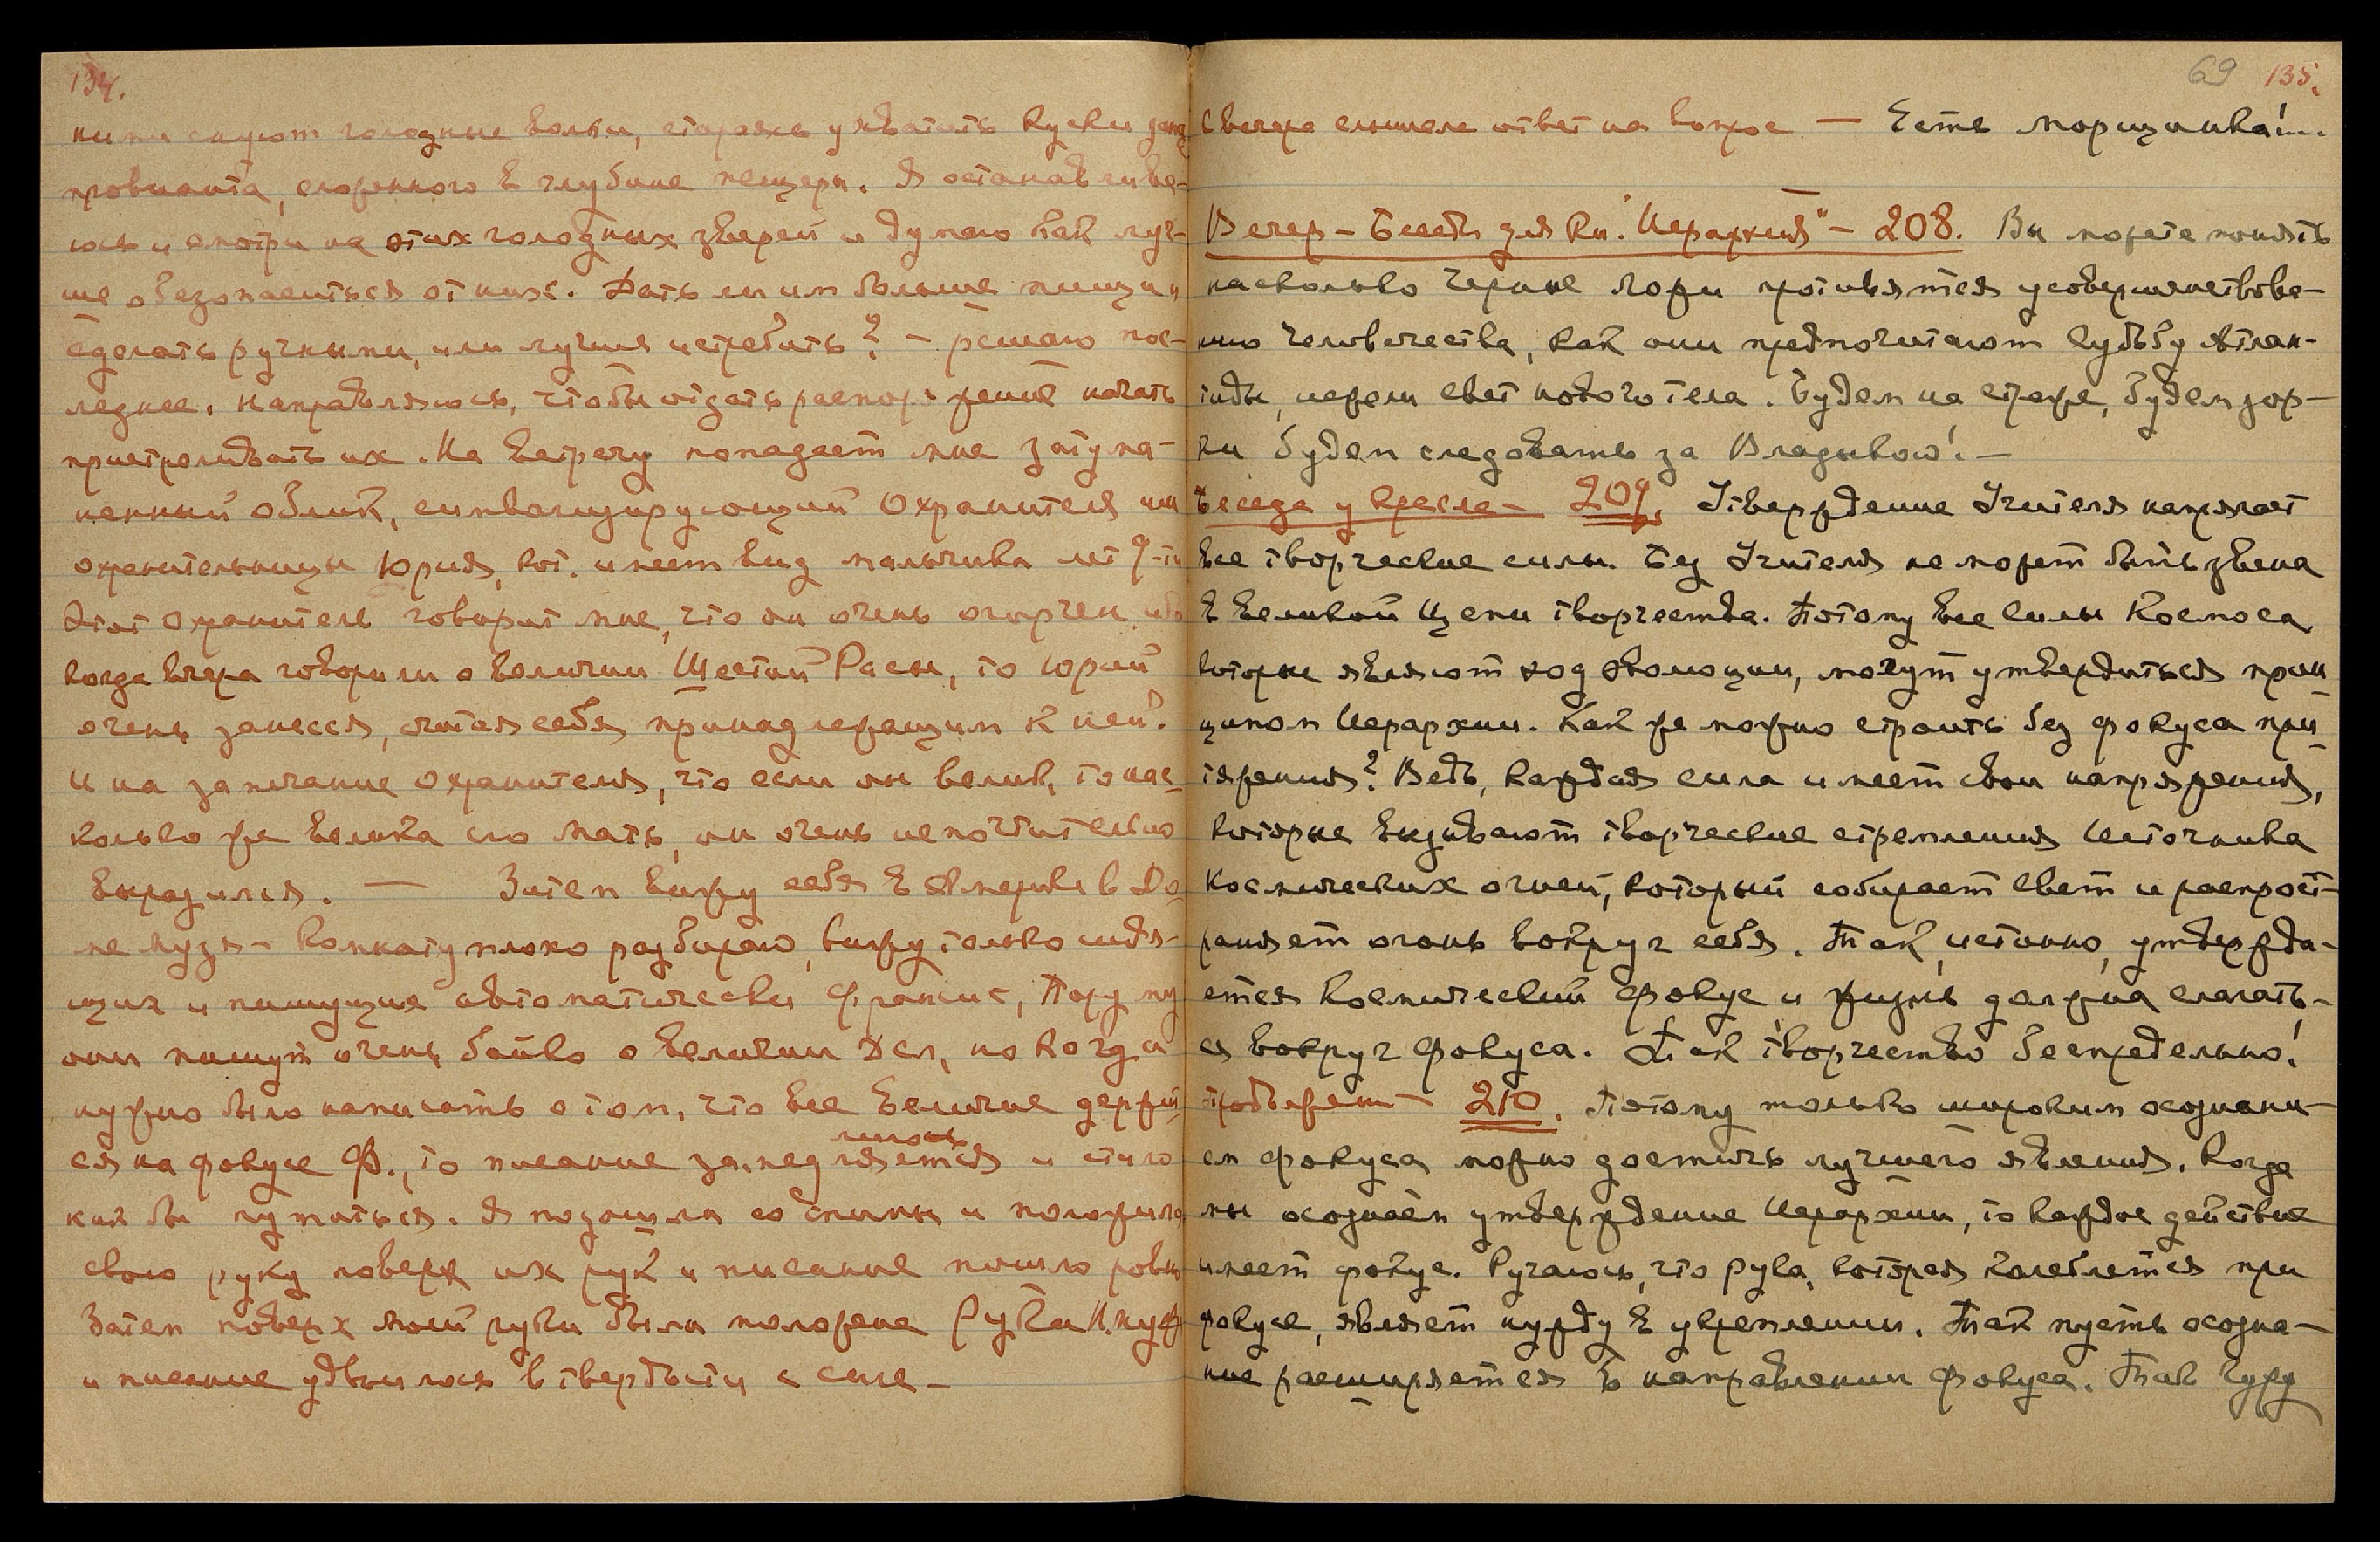 134.
ними снуют голодные волки, стараясь ухватить куски
провианта, сложенного в глубине пещеры. Я останавлива-
юсь и смотрю на этих голодных зверей и думаю как луч-
ше обезопаситься от них. Дать ли им больше пищи и
сделать ручными, или лучше истребить? — решаю пос-
леднее. Направляюсь, чтобы отдать распоряжение начать
пристреливать их. На встречу попадает мне затума-
ненный облик, символизирующий Охранителя или
охранительницы Юрия, кот. имеет вид мальчика лет 9-ти
Этот охранитель говорит мне, что он очень огорчен, ибо
когда вчера говорили о величии Шестой Расы, то Юрий
очень занесся, считая себя принадлежащим к ней.
И на замечание охранителя, что если он велик, то нас-
колько же велика его мать, он очень непочтительно
выразился. — Затем вижу себя в Америке в До-
ме Музы — Комнату плохо разбираю, вижу только сидя-
щих и пишущих автоматически Франсис, Пору
они пишут очень бойко о величии Дел, но когда
нужно было написать о том, что все величие держит-
ся на фокусе Ф., то писание замедляется лилось и стало
как бы путаться. Я подошла со спины и положила
свою руку поверх их рук и писание пошло ровно
Затем поверх моей руки была положена Рука
и писание удвоилось в твердости и силе —
69 135.
С вечера слышала ответ на вопрос — Есть морщинка!..
Вечер — Беседы для Кн. "Иерархия" — 208. Вы можете понять
насколько черные ложи противятся усовершенствова-
нию человечества, как они предпочитают судьбу Атлан-
тиды, нежели свет нового тела. Будем на страже, будем зор-
ки будем следовать за Владыкою! —
Беседа у кресла — 209. Утверждение Учителя напрягает
все творческие силы. Без Учителя не может быть звена
в великой цепи творчества. Потому все силы Космоса,
которые являют ход эволюции, могут утвердиться прин-
ципом Иерархии. Как же можно строить без фокуса при-
тяжения? Ведь, каждая сила имеет свои напряжения,
которые вызывают творческие стремления Источника
космических огней, который собирает свет и распрост-
раняет огонь вокруг себя. Так, истинно, утвержда-
ется космический фокус и жизнь должна слагать-
ся вокруг фокуса. Так творчество беспредельно!
210. Потому только широким осознани-
ем фокуса можно достичь лучшего явления. Когда
мы осознаем утверждение Иерархии, то каждое действие
имеет фокус. Ручаюсь, что рука, которая колеблется при
фокусе, являет нужду в укреплении. Так пусть осозна-
ние расширяется в направлении фокуса. Так Гуру